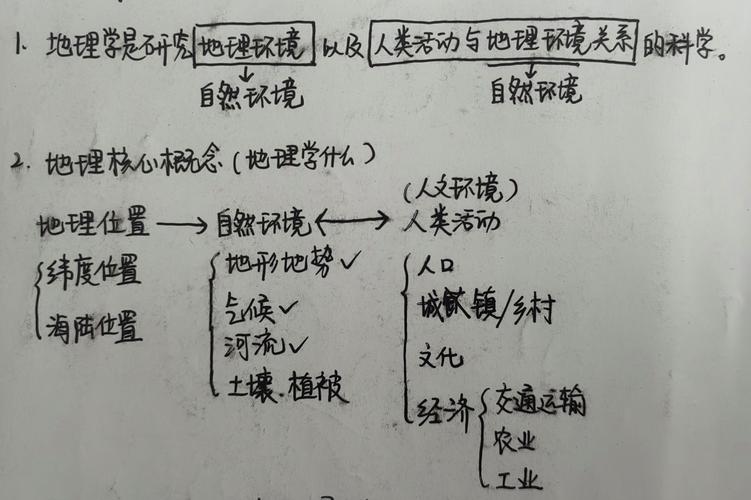 1. 地理学是研究地理环境以及人类活动与地理环境关系的科学。
自然环境 自然环境
2. 地理核心概念(地理学什么)
(人文环境)
地理位置→自然环境↔人类活动
纬度位置 地形地势✓ 人口
海陆位置 气候✓ 城镇/乡村
河流✓ 文化
土壤.植被 经济 交通运输
农业
工业